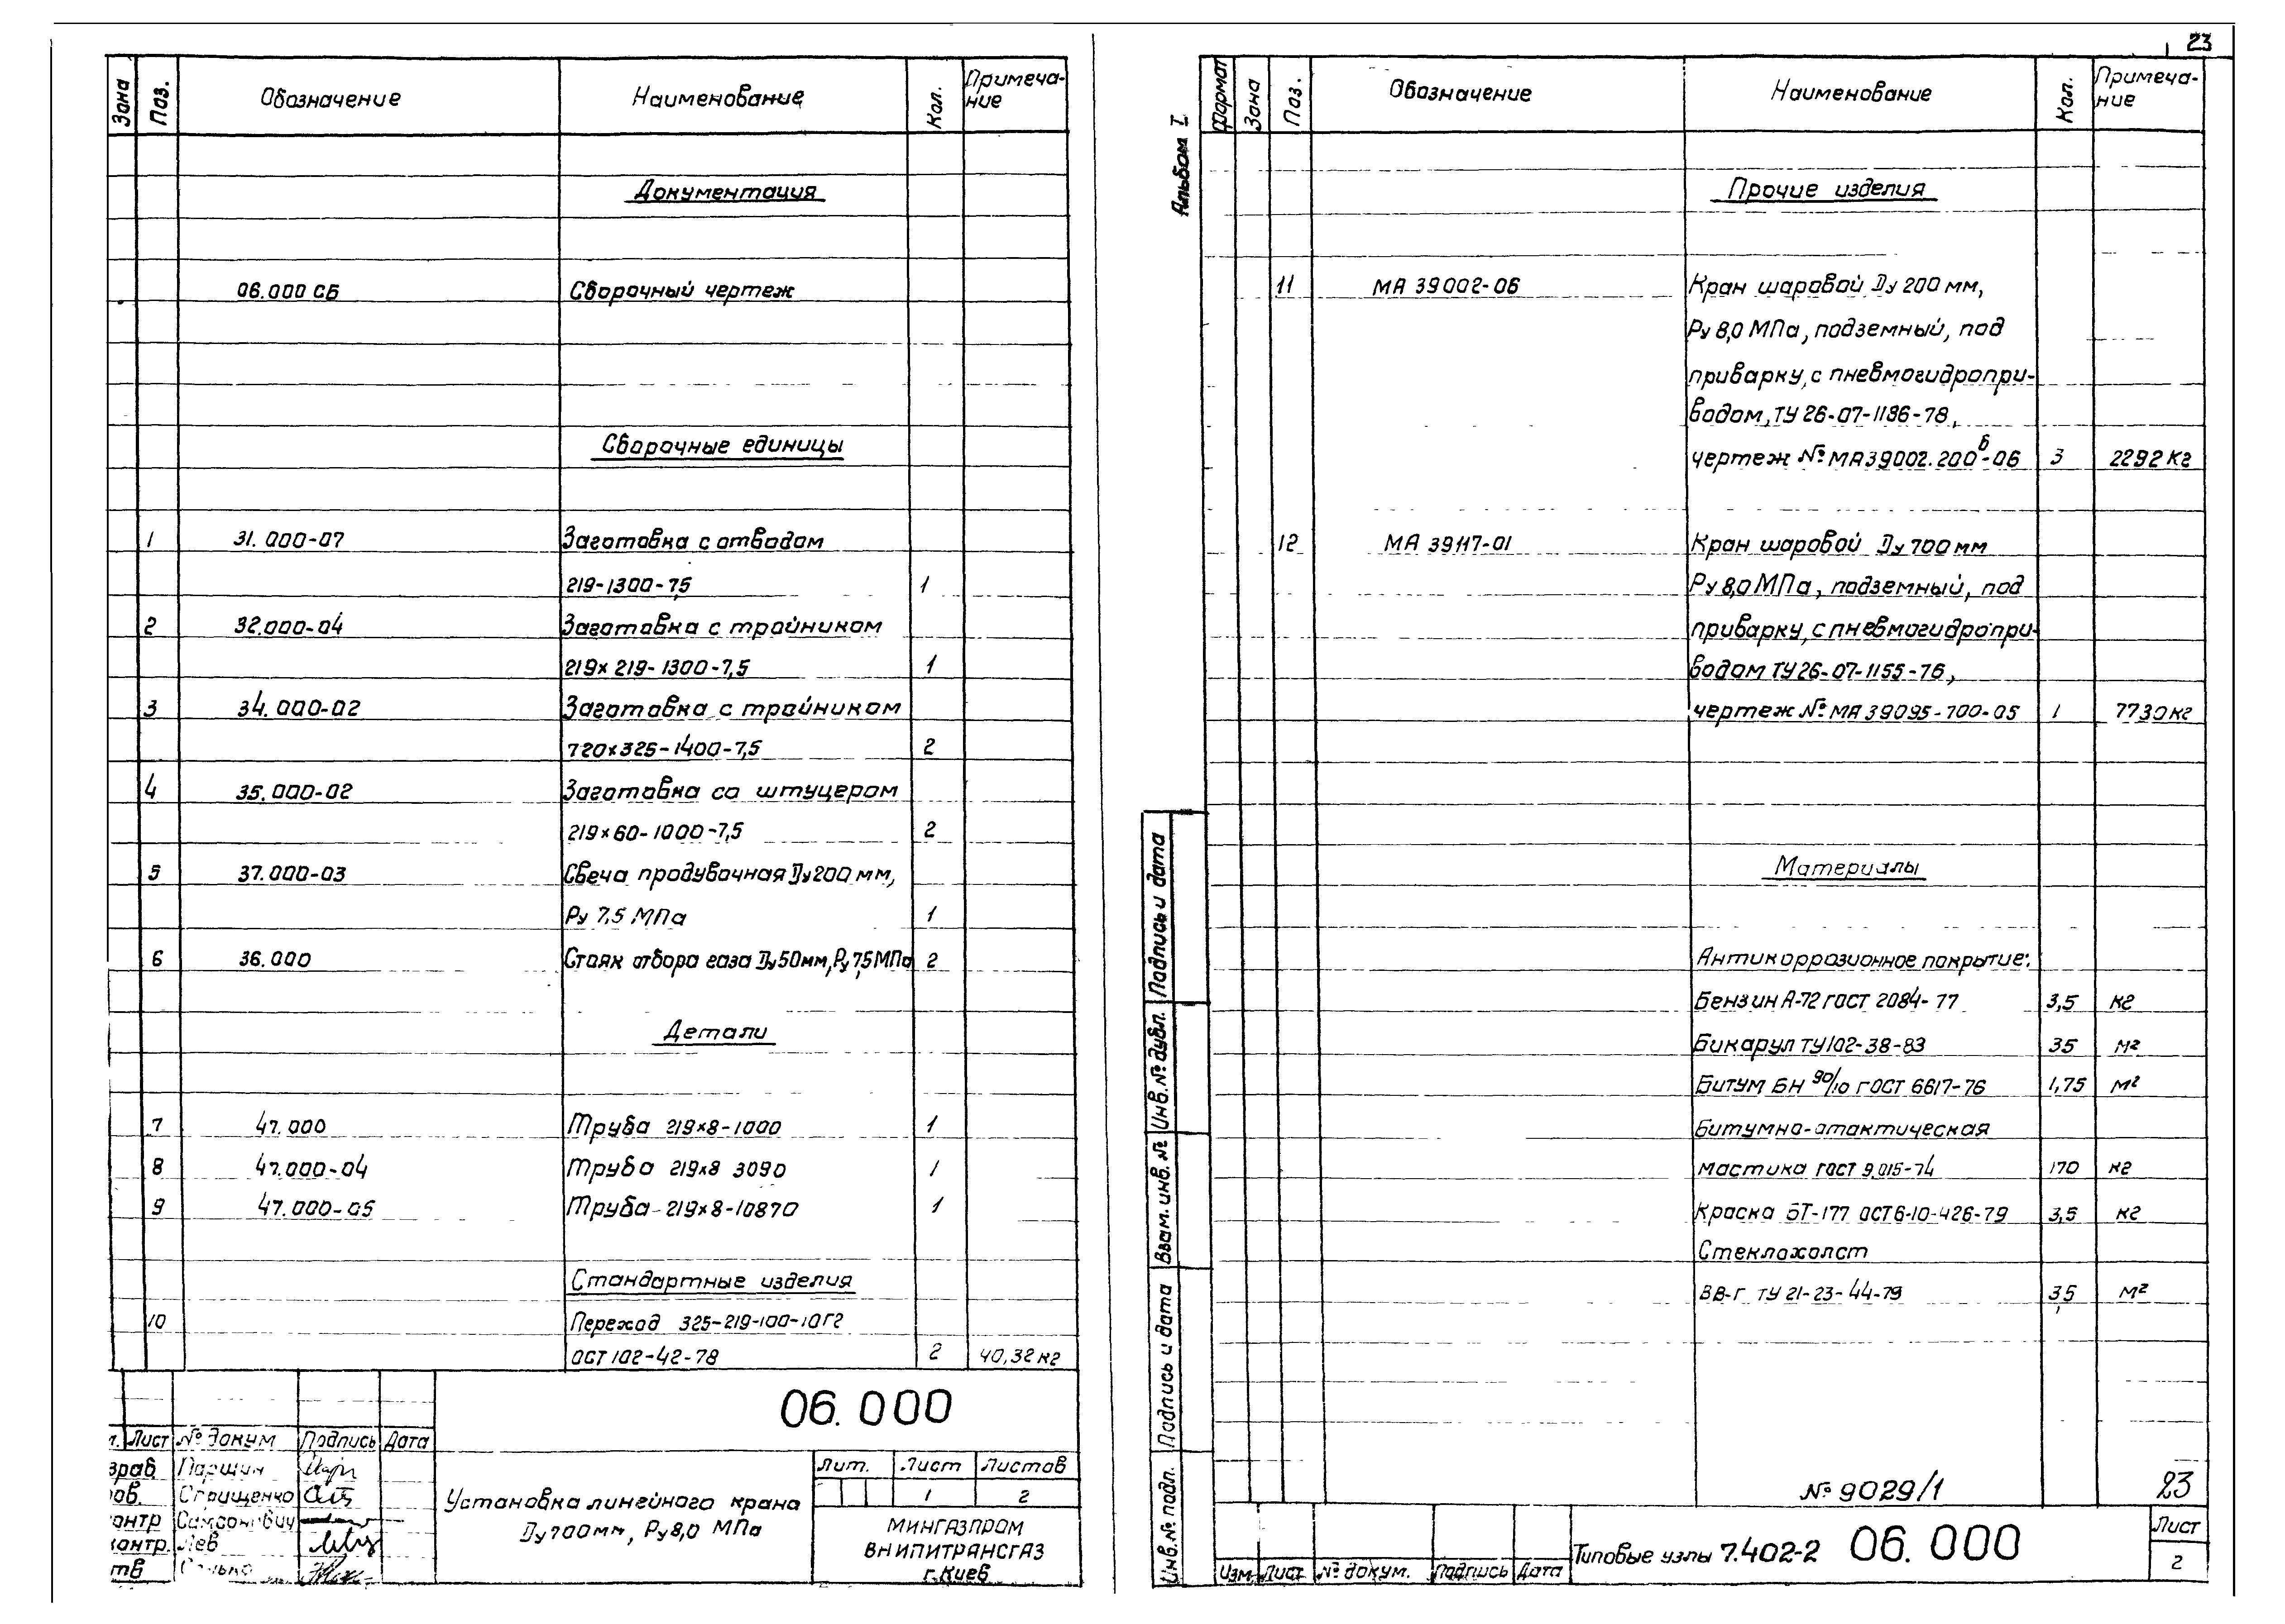 23
Зона Поз. Обозначение Наименование Кол. Примеча-
ние
Документация
06.000 СБ Сборочный чертеж
Сборочные единицы
1 31.000-07 Заготовка с отводом
219-1300-7,5 1
2 32.000-04 Заготовка с тройником
219×219-1300-7,5 1
3 34.000-02 Заготовка с тройником
720×325-1400-7,5 2
4 35.000-02 Заготовка со штуцером
219×60-1000-7,5 2
5 37.000-03 Свеча продувочная Ду200 мм,
Ру 7,5 МПа 1
6 36.000 Стояк отбора газа Ду50мм, Ру 7,5 МПа 2
Детали
7 47.000 Труба 219×8-1000 1
8 47.000-04 Труба 219×8 3090 1
9 47.000-05 Труба-219×8-10870 1
Стандартные изделия
10 Переход 325-219-100-10Г2
ОСТ 102-42-78 2 40,32 кг
06.000
Лист № докум Подпись Дата
зраб Паршин
ов. Стрищенко
онтр Самсонович
контр. Лев
тв
Установка линейного крана
Ду700мм, Ру8,0 МПа
Лит. Лист Листов
1 2
МИНГАЗПРОМ
ВНИПИТРАНСГАЗ
г.Киев
Альбом I
Формат Зона Поз. Обозначение Наименование Кол. Примеча-
ние
Прочие изделия
11 МА 39002-06 Кран шаровой Ду 200 мм,
Ру 8,0 МПа, подземный, под
приварку, с пневмогидропри-
водом, ТУ 26-07-1186-78,
чертеж № МА39002.200б-06 3 2292 кг
12 МА 39117-01 Кран шаровой Ду 700 мм
Ру 8,0 МПа, подземный, под
приварку, с пневмогидропри-
водом ТУ 26-07-1155-76,
чертеж № МА 39095-700-05 1 7730 кг
Материалы
Антикоррозионное покрытие:
Бензин А-72 ГОСТ 2084-77 3,5 кг
Бикарул ТУ102-38-83 35 м²
Битум БН 90/10 ГОСТ 6617-76 1,75 м²
Битумно-атактическая
мастика ГОСТ 9.015-74 170 кг
Краска БТ-177 ОСТ6-10-426-79 3,5 кг
Стеклохолст
ВВ-Г ТУ 21-23-44-79 35 м²
Подпись и дата
Инв. № дубл.
Взам. инв. №
Подпись и дата
Инв. № подл.
№ 9029/1 23
Изм Лист № докум. Подпись Дата
Типовые узлы 7.402-2 06.000
Лист
2